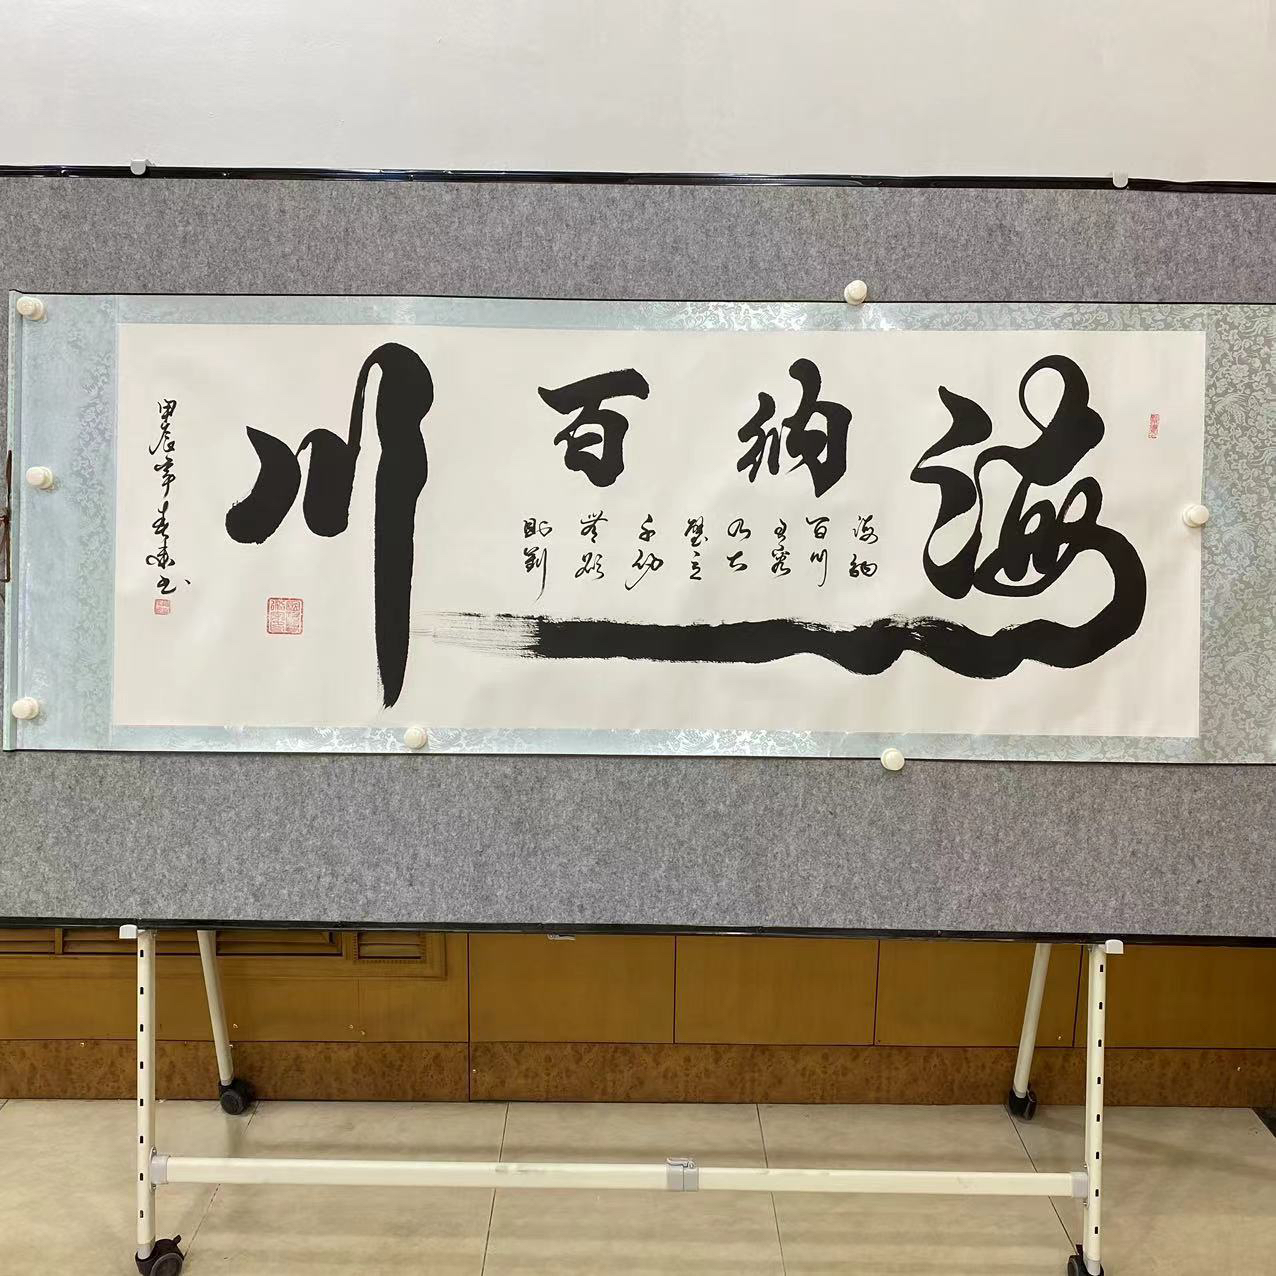 海纳百川
海纳
百川
有容
乃大
壁立
千仞
無欲
则刚
甲辰年春
书